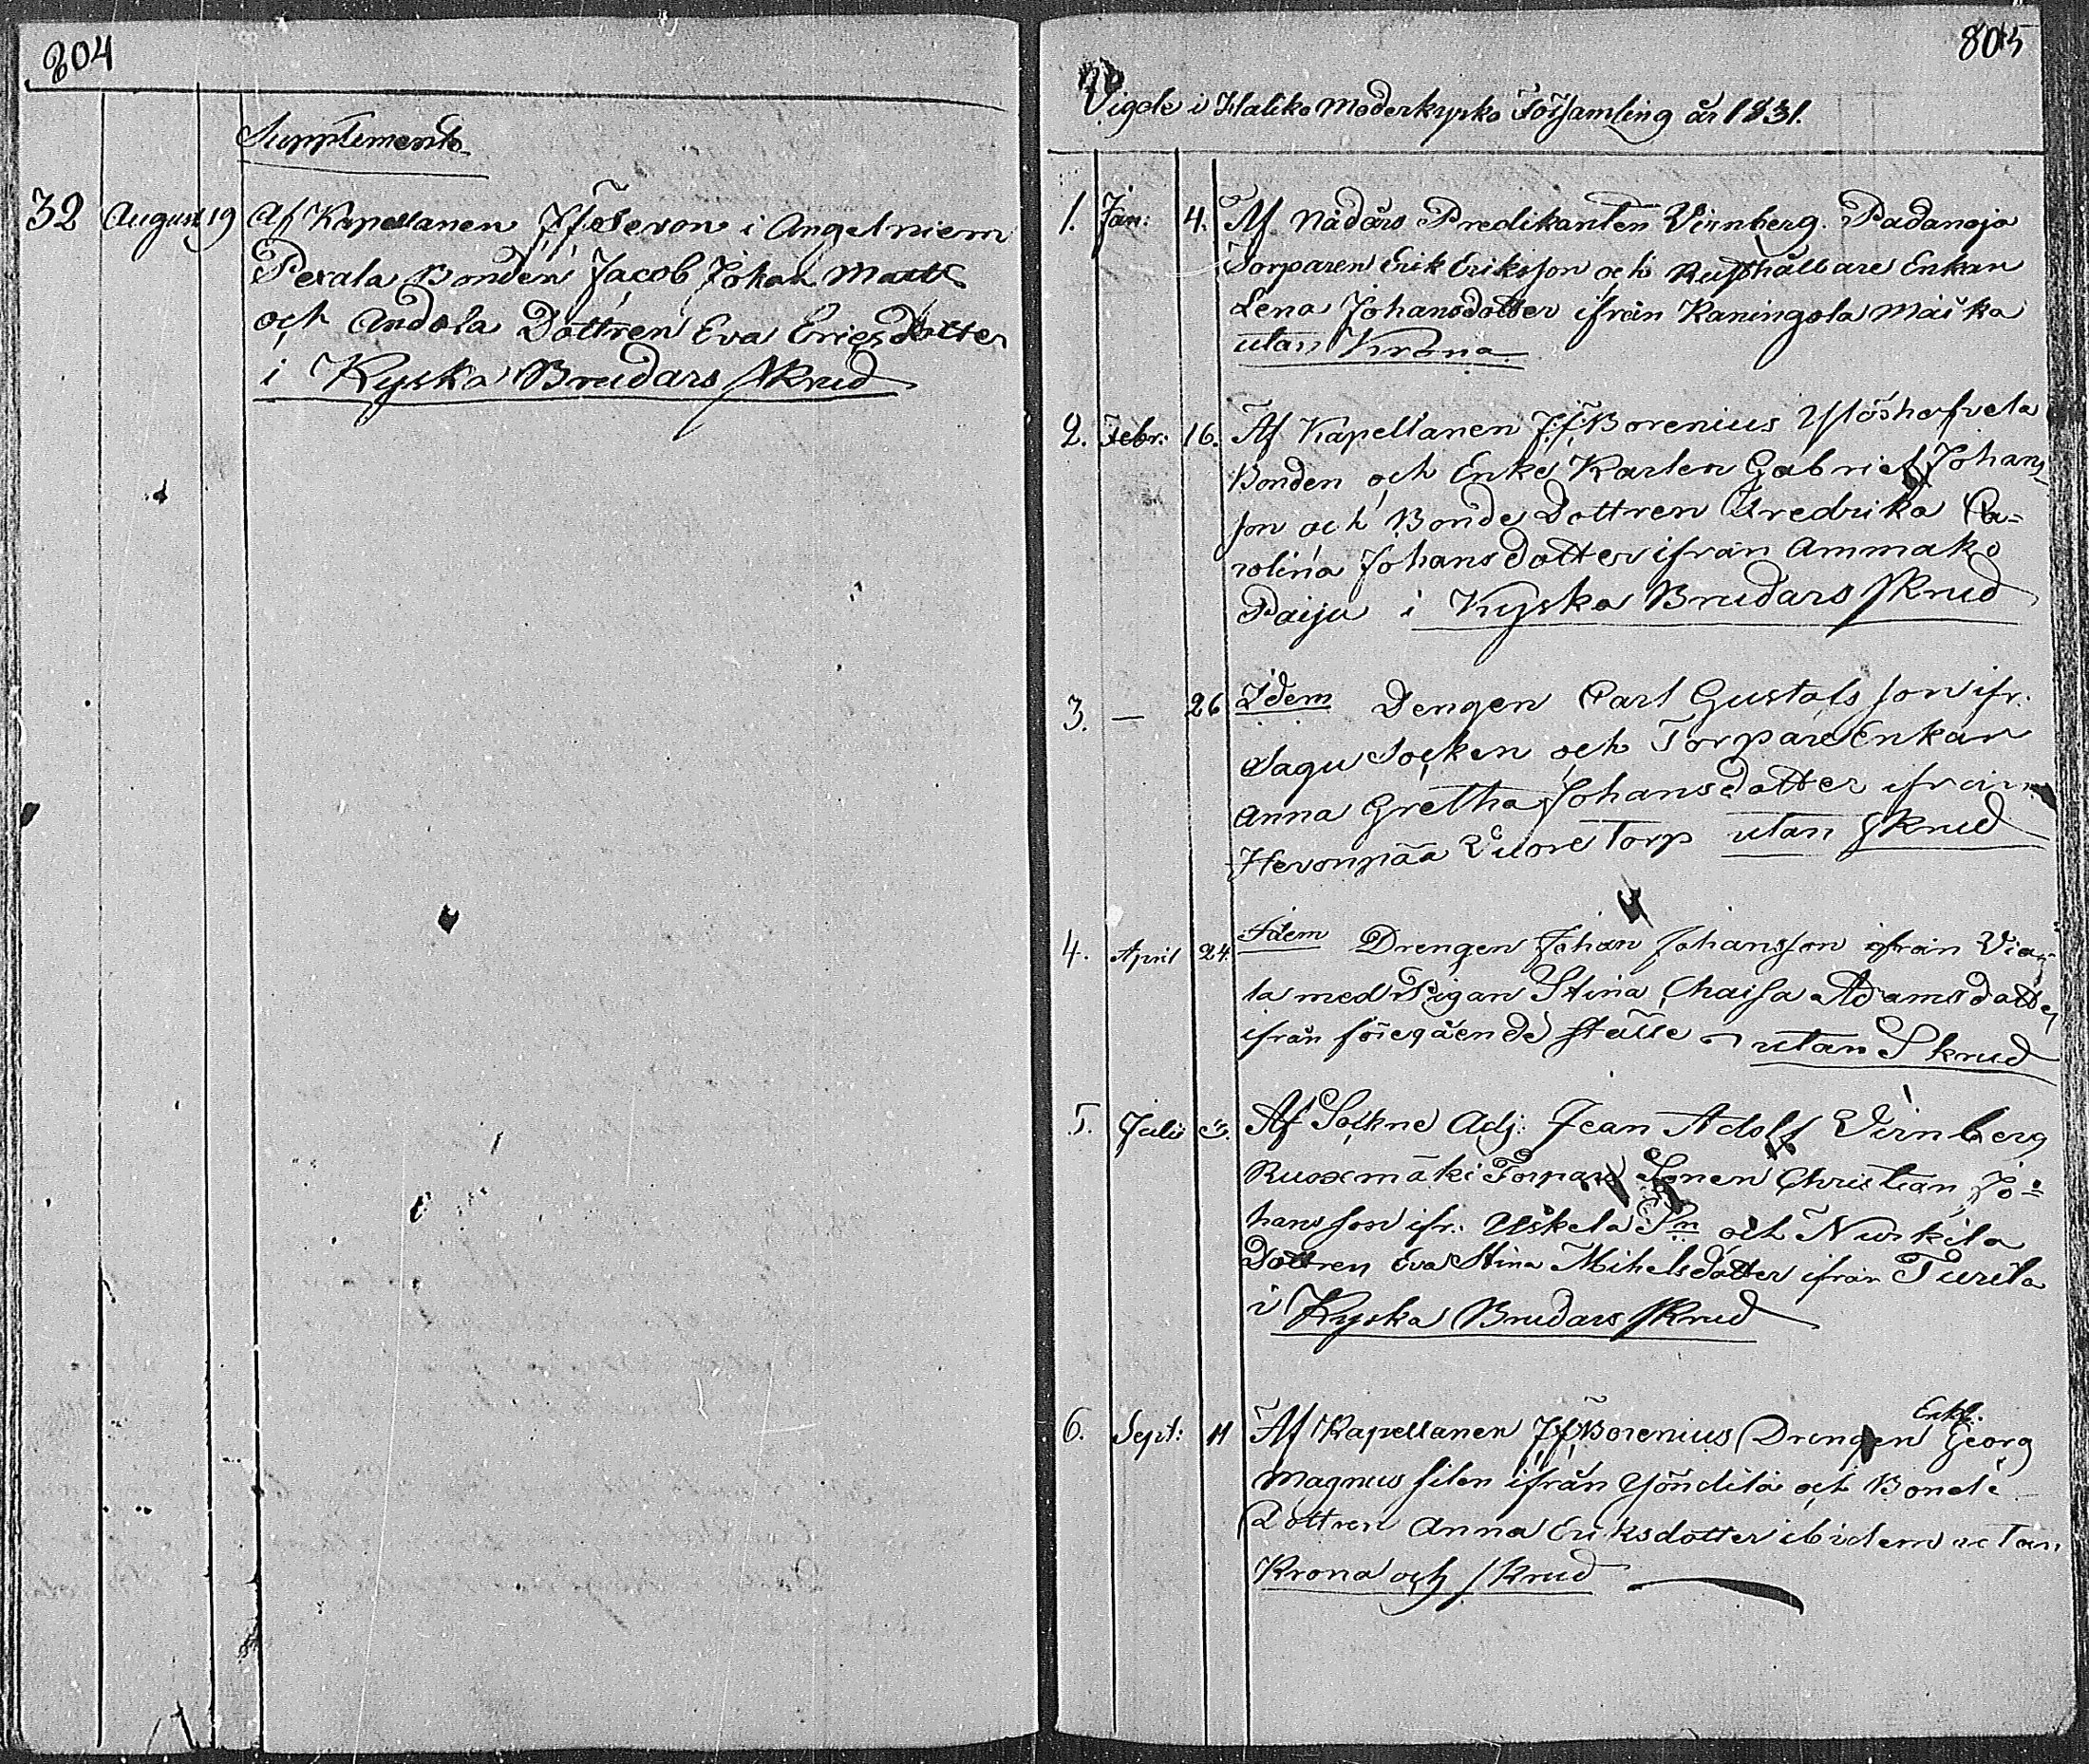 804
Supplement
32 August 19 Af Kapellanen i Angelniemi
Pexala Bonden Jacob Johan Matts
och Andola Dottren Eva Ericsdotter
i Kyska Brudars skrud
805
Vigde i Haliko Moderkyrko Församling år 1831.
1. Jan: 4. Af Nådårs Predikanten Virnberg. Padanoja
Torparen Erik Eriksson och Rusthållare Enkan
Lena Johansdotter ifrån Kaningola Maika
utan Krona
2. Febr: 16. Af Kapellanen JF Borenius Ylöshofvela
Bonden och Enke Karlen Gabriel Johans-
son och Bonde Dottren Fredrika Ca-
rolina Johansdotter ifrån Ammako
Paiju i Kyska Brudars skrud
3. — 26 Idem Dengen Carl Gustafsson ifr.
Sagu Socken och Torpare Enkan
Anna Gretha Johansdotter ifrån
Hevonpää Vuore Torp utan skrud
4. April 24. Idem Drengen Johan Johansson ifrån Via-
la med Pigan Stina Chaisa Adamsdotter
ifrån föregående ställe utan Skrud
5. Julii 3. Af Sockne Adj: Jean Adolf Virnberg
Ruoxmäki Torpare Sonen Christian Jo-
hansson ifr: Uskela Sn och Nurkila
Dottren Eva Stina Mihelsdotter ifrån Turila
i Kyska Brudars skrud
Enkl.
6. Sept: 11 Af Kapellanen JF Borenius Drengen Georg
Magnus Silen ifrån Yöndilä och Bonde
Dottren Anna Eriksdotter ibidem utan
Krona och skrud